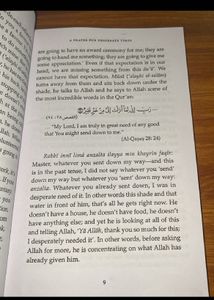 A PRAYER FOR DESPERATE TIMES
are going to have an award ceremony for me; they are
going to hand me something; they are going to give me
some appreciation.' Even if that expectation is in our
head, we are missing something from this du'ā'. We
cannot have that expectation. Mūsā ('alayhi al-salām)
turns away from them and sits back down under the
shade, he talks to Allah and he says to Allah some of
the most incredible words in the Qur'an:
رَبِّ إِنِّي لِمَا أَنزَلْتَ إِلَيَّ مِنْ خَيْرٍ فَقِيرٌ
"My Lord, I am truly in great need of any good
that You might send down to me."
(Al-Qasas 28: 24)
Rabbi innī limā anzalta ilayya min khayrin faqīr:
Master, whatever you sent down my way—and this
is in the past tense, I did not say whatever you 'send'
down my way but whatever you 'sent' down my way:
anzalta. Whatever you already sent down, I was in
desperate need of it. In other words this shade and that
water in front of him, that's all he gets right now. He
doesn't have a house, he doesn't have food, he doesn't
have anything else; and yet he is looking at all of this
and telling Allah, 'Yā Allāh, thank you so much for this;
I desperately needed it'. In other words, before asking
Allah for more, he is concentrating on what Allah has
already given him.
9